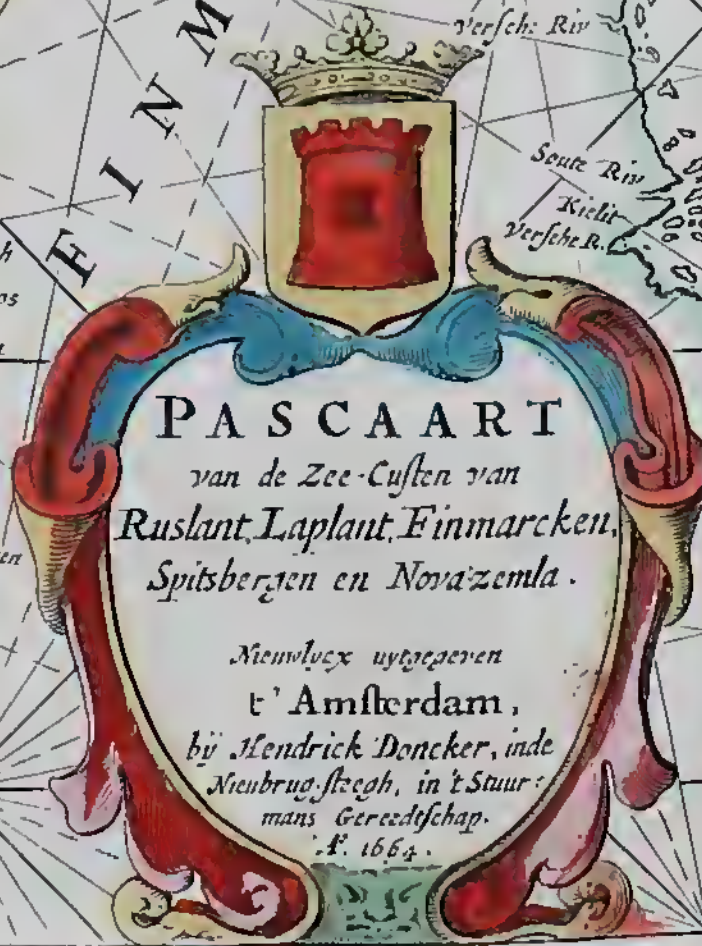 FINM
Versche Riv
Soute Riv
Kielit
Versche R.
PASCAART
van de Zee-Custen van
Ruslant, Laplant, Finmarcken,
Spitsbergen en Nova-zemla.
Nieuwlycx uytgegeven
t' Amsterdam,
bij Hendrick Doncker, inde
Nieubrug-steegh, in 't Stuur-
mans Gereedtschap.
A°. 1664.